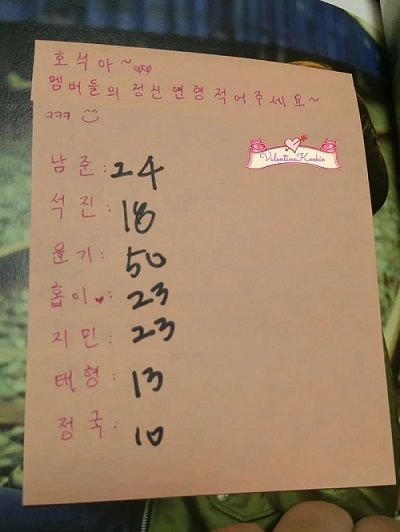 호석아~
멤버들의 정신연령 적어주세요~
ㅋㅋㅋ
Valentine Kookie
남준: 24
석진: 18
윤기: 50
홉이♥: 23
지민: 23
태형: 13
정국: 10